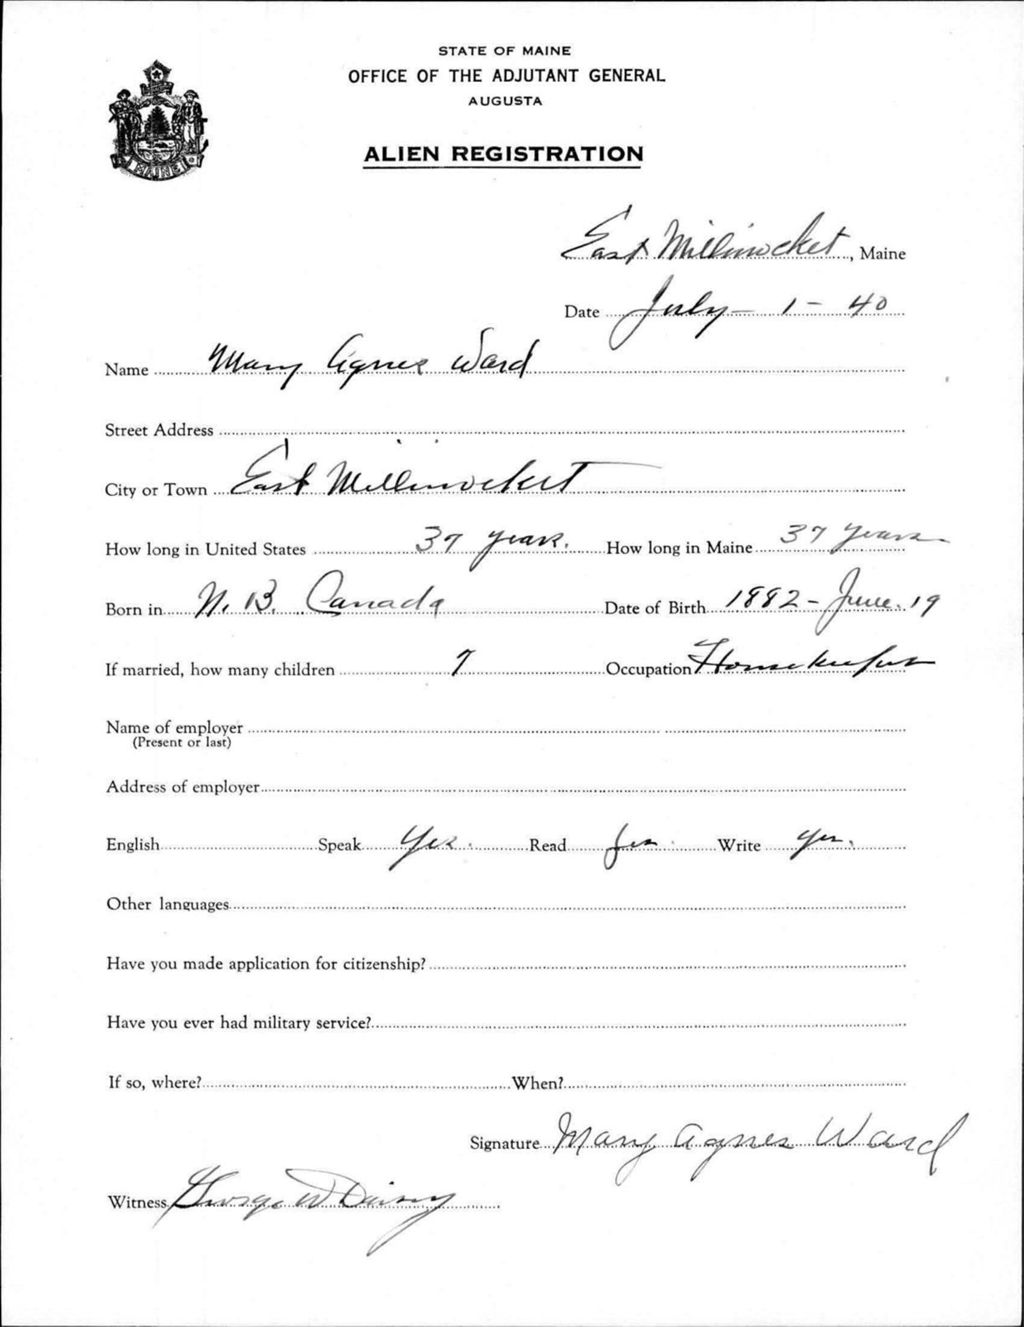 STATE OF MAINE
OFFICE OF THE ADJUTANT GENERAL
AUGUSTA
ALIEN REGISTRATION
MAINE
East Millinocket, Maine
Date July - 1 - 40
Name Mary Agnes Ward
Street Address
City or Town East Millinocket
How long in United States 37 years. How long in Maine 37 years
Born in N. B. Canada Date of Birth 1882 - June. 19
If married, how many children 7 Occupation Housekeeper
Name of employer
(Present or last)
Address of employer
English Speak Yes. Read yes. Write yes.
Other languages
Have you made application for citizenship?
Have you ever had military service?
If so, where? When?
Signature Mary Agnes Ward
Witness George W